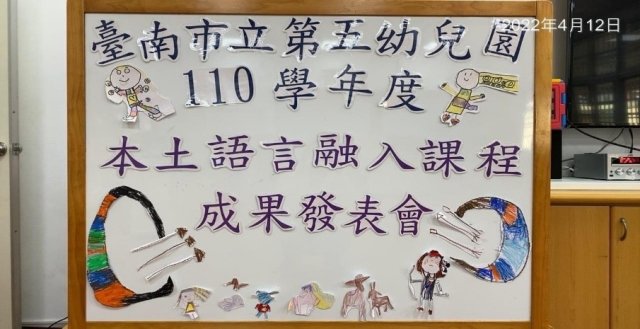 2022年4月12日
臺南市立第五幼兒園
110學年度
本土語言融入課程
成果發表會